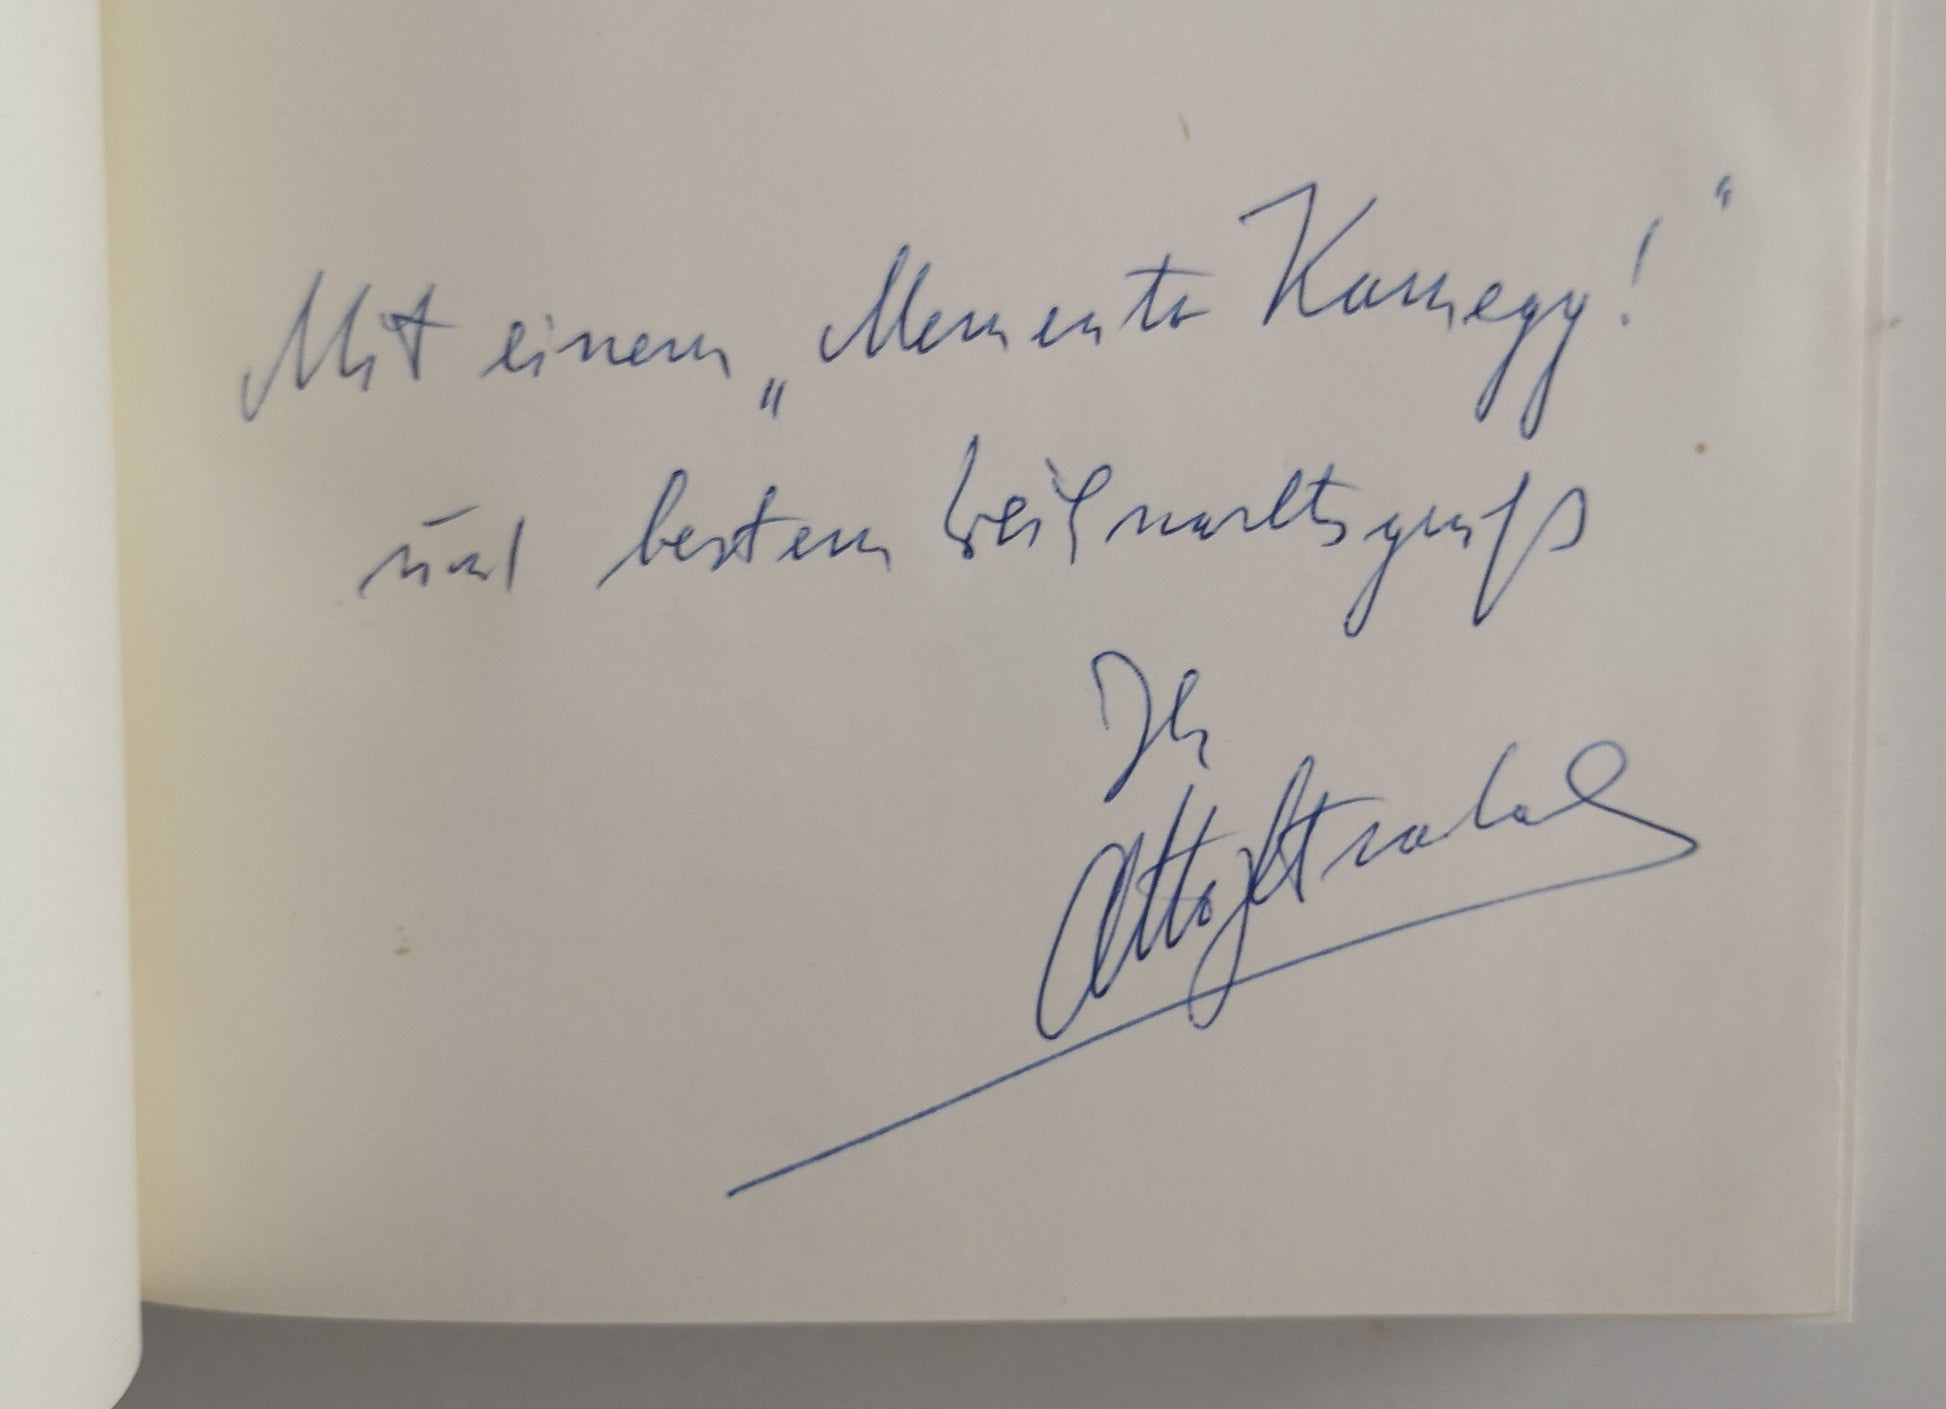 Mit einem „Memento Kornegg!“
und bestem Weihnachtsgruß
Ihr
Otto Strobel